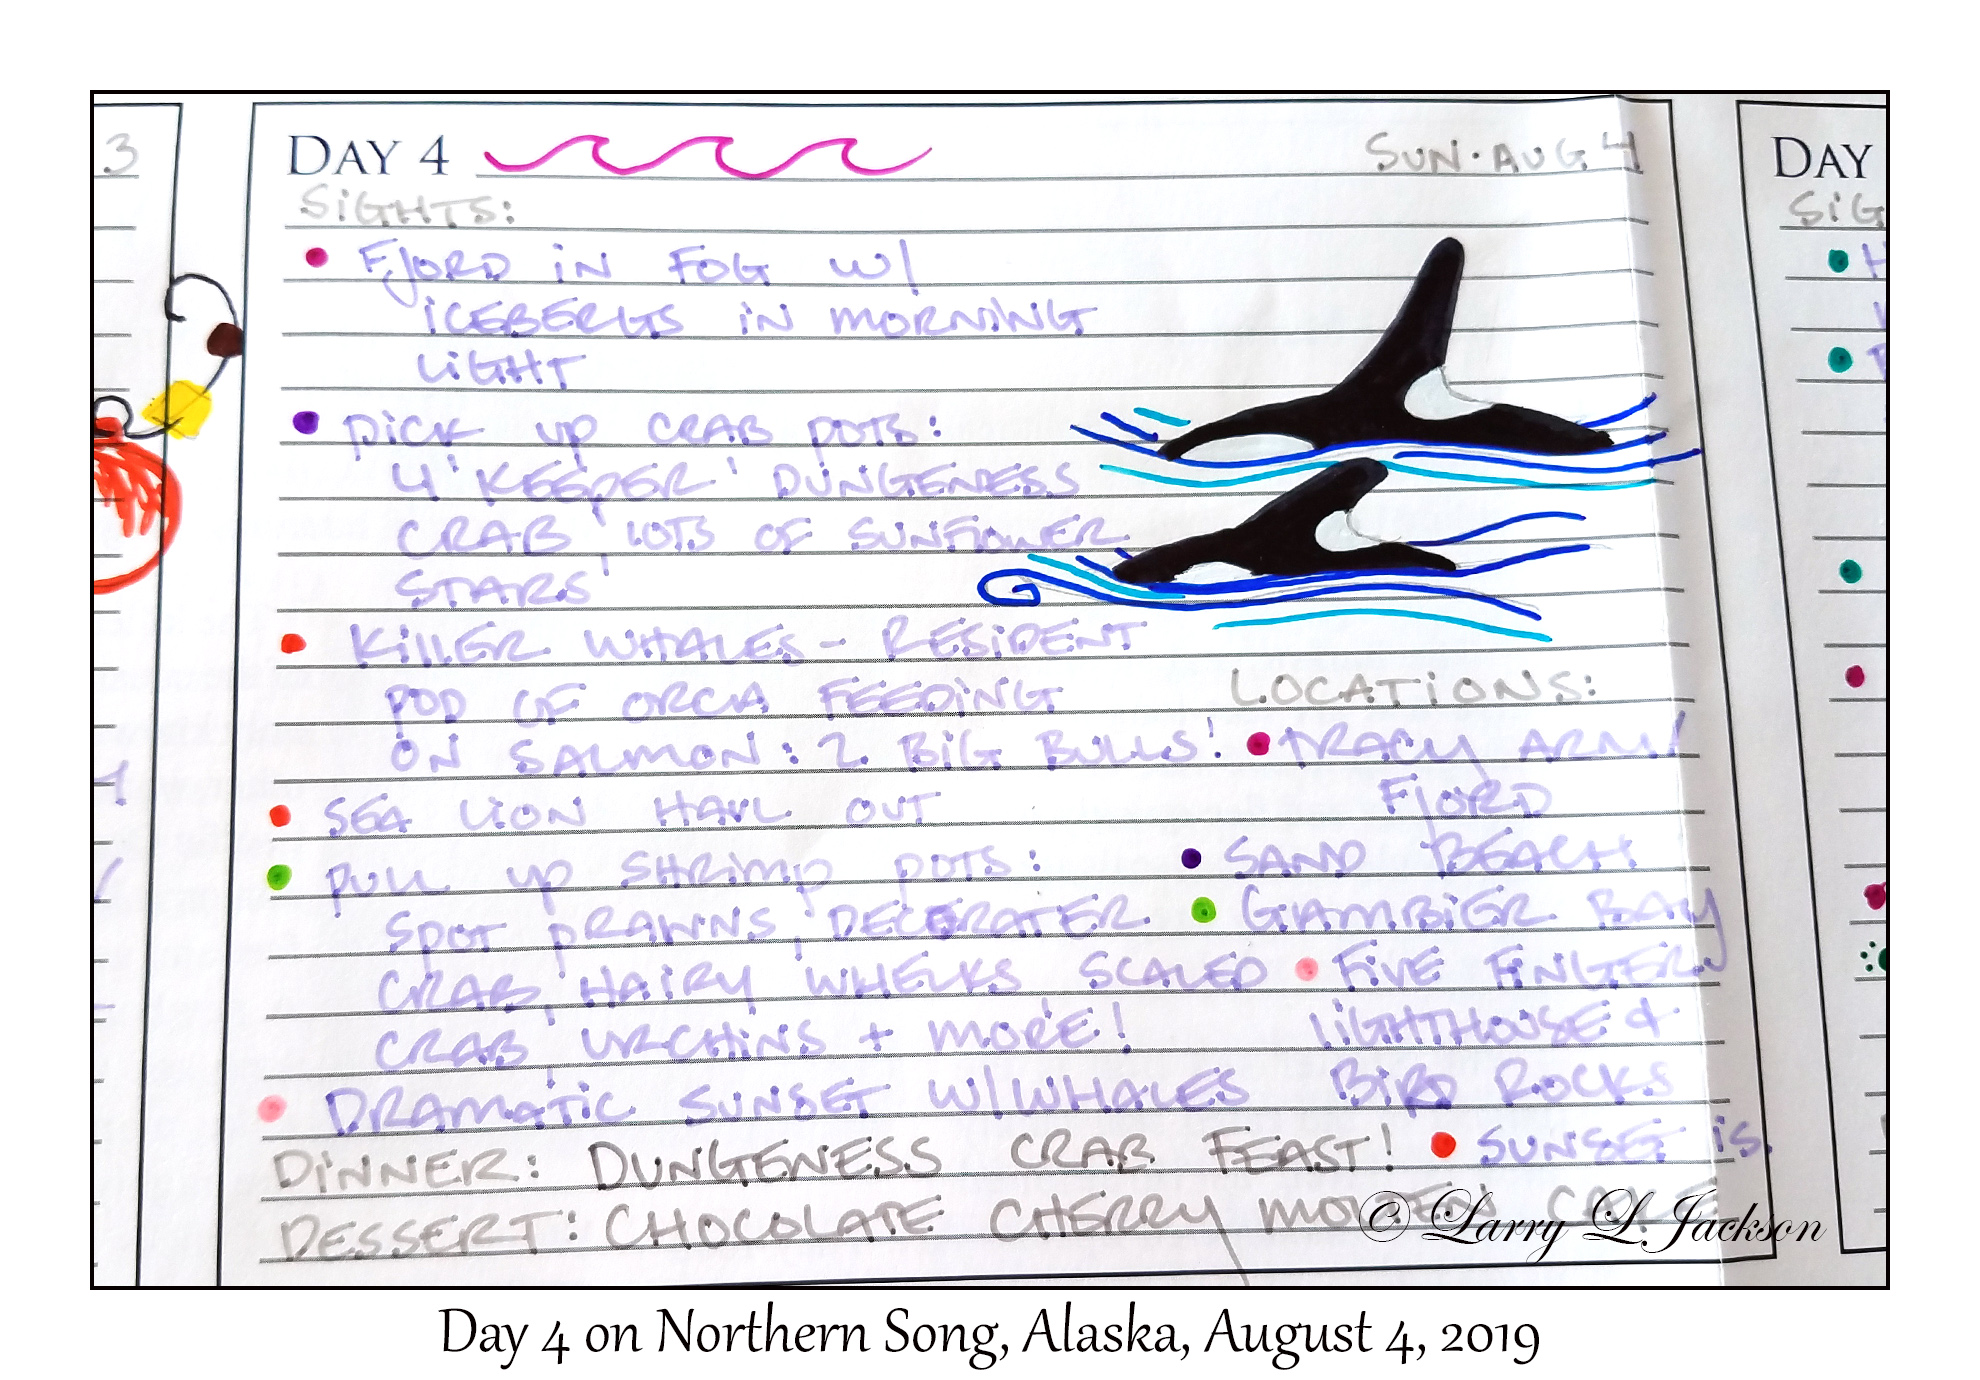 3
DAY 4
SUN · AUG 4
SIGHTS:
FJORD IN FOG W/
ICEBERGS IN MORNING
LIGHT
PICK UP CRAB POTS:
4 'KEEPER' DUNGENESS
CRAB, LOTS OF SUNFLOWER
STARS!
KILLER WHALES - RESIDENT
POD OF ORCA FEEDING
ON SALMON: 2 BIG BULLS!
SEA LION HAUL OUT
PULL UP SHRIMP POTS:
SPOT PRAWNS, DECORATER
CRAB, HAIRY WHELKS SCALED
CRAB, URCHINS + MORE!
DRAMATIC SUNSET W/WHALES
LOCATIONS:
TRACY ARM
FJORD
SAND BEACH
GAMBIER BAY
FIVE FINGER
LIGHTHOUSE &
BIRD ROCKS
SUNSET IS.
DINNER: DUNGENESS CRAB FEAST!
DESSERT: CHOCOLATE CHERRY MOLTEN CAKE
DAY
SIG
© Larry L. Jackson
Day 4 on Northern Song, Alaska, August 4, 2019